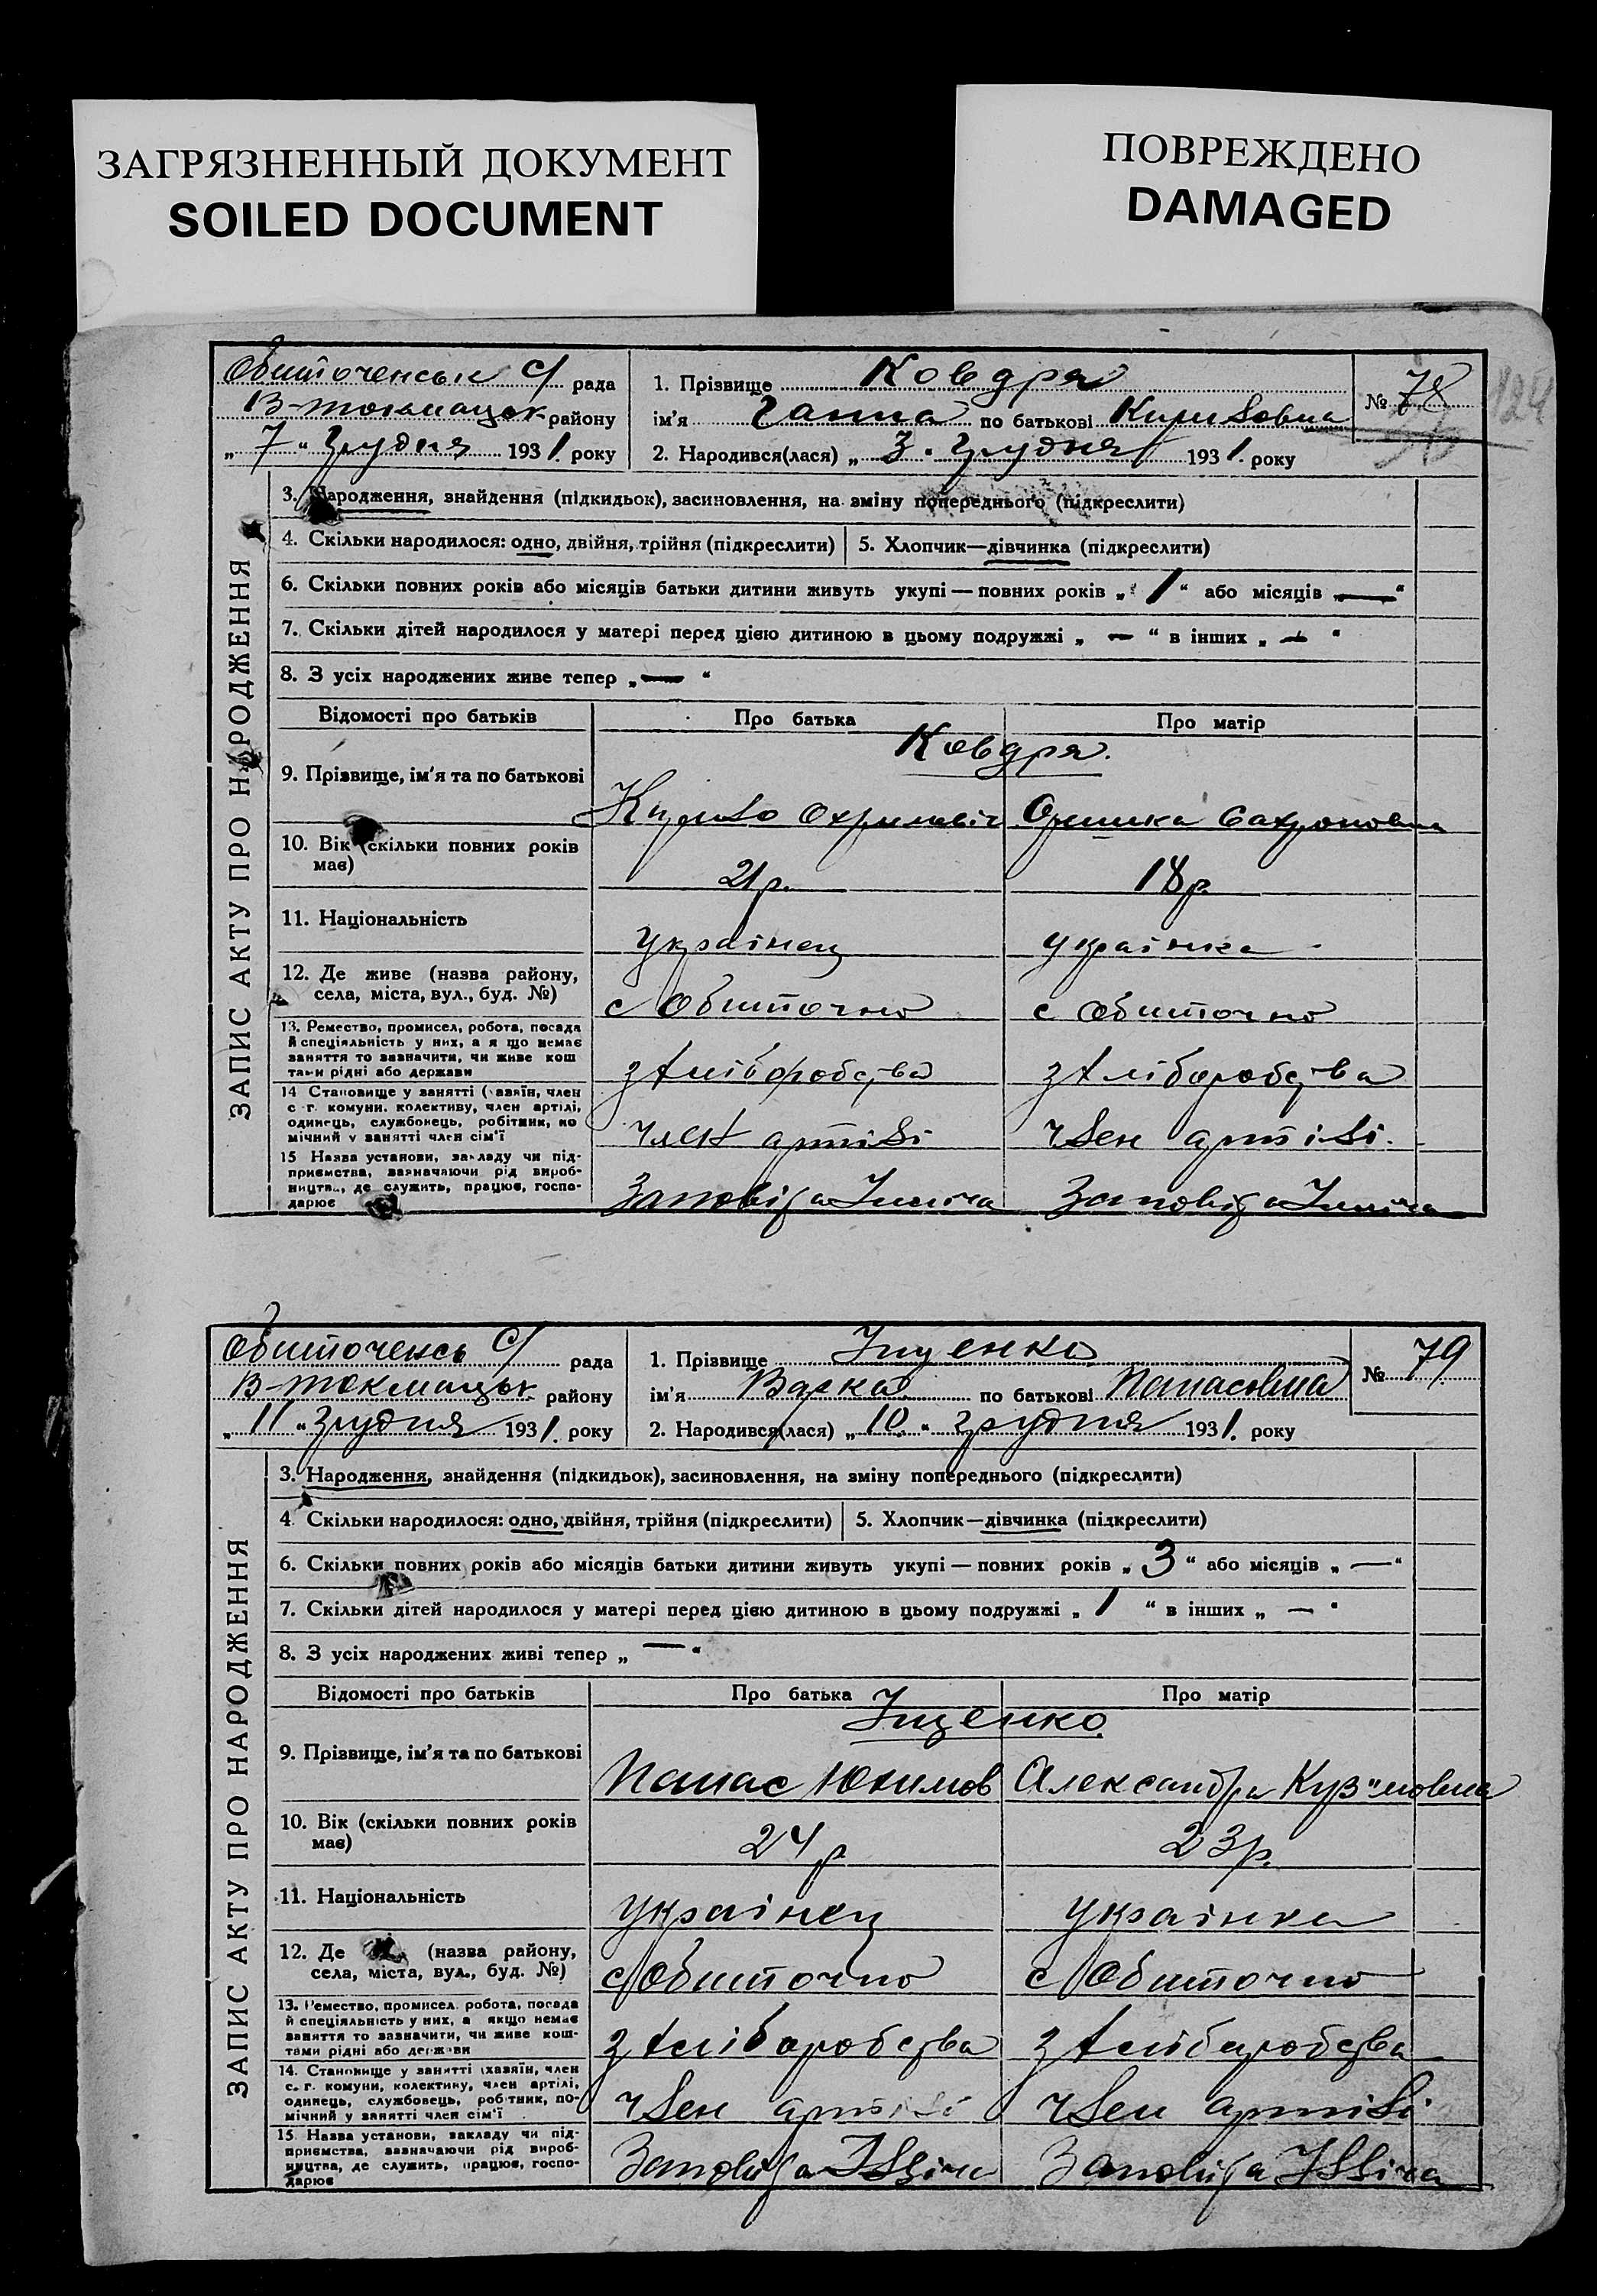 ЗАГРЯЗНЕННЫЙ ДОКУМЕНТ
SOILED DOCUMENT
ПОВРЕЖДЕНО
DAMAGED
ЗАПИС АКТУ ПРО НАРОДЖЕННЯ
Обиточенськ С/ рада
В-токмацьк району
„ 7 " грудня 1931. року
1. Прізвище Ковдря
ім'я Ганна по батькові Кириловна
2. Народився(лася) „ 3. грудня 1931. року
№ 78
124
3. Народження, знайдення (підкидьок), засиновлення, на зміну попереднього (підкреслити)
4. Скільки народилося: одно, двійня, трійня (підкреслити) 5. Хлопчик—дівчинка (підкреслити)
6. Скільки повних років або місяців батьки дитини живуть укупі — повних років „ 1 " або місяців „ — "
7. Скільки дітей народилося у матері перед цією дитиною в цьому подружжі „ — " в інших „ — "
8. З усіх народжених живе тепер „ — "
Відомості про батьків Про батька Про матір
Ковдря.
9. Прізвище, ім'я та по батькові
Кирило Охримовіч Оришка
10. Вік (скільки повних років
має)
21р. 18р.
11. Національність
українец українка
12. Де живе (назва району,
села, міста, вул., буд. №)
с Обиточно с Обиточно
13. Ремество, промисел, робота, посада
й спеціяльність у них, а я що немає
заняття то зазначити, чи живе кош
тами рідні або держави
з хліборобства з хліборобства
14 Становище у занятті (хазяїн, член
с-г. комуни, колективу, член артілі,
одинець, службовець, робітник, по
мічний у занятті член сім'ї
член артілі член артілі.
15 Назва установи, закладу чи під-
приємства, зазначаючи рід вироб-
ництва, де служить, працює, госпо-
дарює
Заповіда Ілліча Заповіда Ілліча
ЗАПИС АКТУ ПРО НАРОДЖЕННЯ
Обиточенсь С/ рада
В-токмацьк району
„ 11 " грудня 1931. року
1. Прізвище Іщенко
ім'я Варка по батькові Панасовна
2. Народився(лася) „ 10. " грудня 1931. року
№ 79
3. Народження, знайдення (підкидьок), засиновлення, на зміну попереднього (підкреслити)
4. Скільки народилося: одно, двійня, трійня (підкреслити) 5. Хлопчик—дівчинка (підкреслити)
6. Скільки повних років або місяців батьки дитини живуть укупі — повних років „ 3 " або місяців „ — "
7. Скільки дітей народилося у матері перед цією дитиною в цьому подружжі „ 1 " в інших „ — "
8. З усіх народжених живі тепер „ — "
Відомості про батьків Про батька Про матір
Іщенко
9. Прізвище, ім'я та по батькові
Панас Юхимов Александра Куз"мовна
10. Вік (скільки повних років
має)
24р 23р.
11. Національність
українец українка
12. Де (назва району,
села, міста, вул., буд. №)
с Обиточно с Обиточно
13. Ремество, промисел, робота, посада
й спеціяльність у них, а якщо немає
заняття то зазначити, чи живе кош-
тами рідні або держави
з хліборобства з хліборобства
14. Становище у занятті (хазяїн, член
с. г. комуни, колективу, член артілі,
одинець, службовець, робітник, по-
мічний у занятті член сім'ї
член артілі член артілі
15. Назва установи, закладу чи під-
приємства, зазначаючи рід вироб-
ництва, де служить, працює, госпо-
дарює
Заповіда Ілліча Заповіда Ілліча